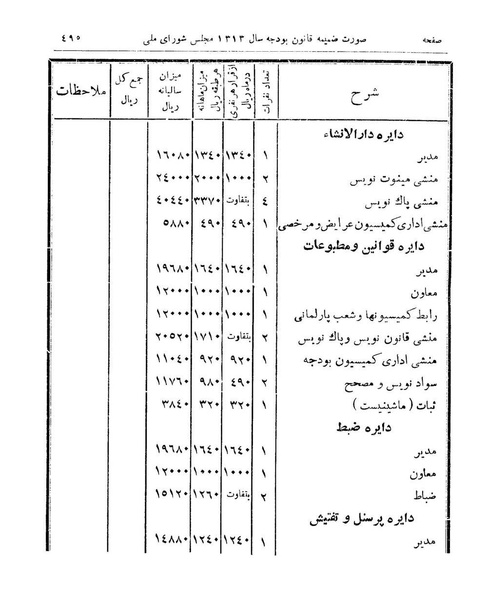 صفحه صورت ضمیمه قانون بودجه سال ۱۳۱۳ مجلس شورای ملی ۴۹۵
شرح تعداد نفرات از قرار هر نفری در ماه ریال میزان ماهانه هر طبقه ریال میزان سالیانه ریال جمع کل ریال ملاحظات
دایره دارالانشاء
مدیر ۱ ۱۳۴۰ ۱۳۴۰ ۱۶۰۸۰
منشی مینوت نویس ۲ ۱۰۰۰ ۲۰۰۰ ۲۴۰۰۰
منشی پاك نویس ۴ بتفاوت ۳۳۷۰ ۴۰۴۴۰
منشی اداری کمیسیون عرایض و مرخصی ۱ ۴۹۰ ۴۹۰ ۵۸۸۰
دایره قوانین و مطبوعات
مدیر ۱ ۱۶۴۰ ۱۶۴۰ ۱۹۶۸۰
معاون ۱ ۱۰۰۰ ۱۰۰۰ ۱۲۰۰۰
رابط کمیسیونها و شعب پارلمانی ۱ ۱۰۰۰ ۱۰۰۰ ۱۲۰۰۰
منشی قانون نویس و پاك نویس ۲ بتفاوت ۱۷۱۰ ۲۰۵۲۰
منشی اداری کمیسیون بودجه ۱ ۹۲۰ ۹۲۰ ۱۱۰۴۰
سواد نویس و مصحح ۲ ۴۹۰ ۹۸۰ ۱۱۷۶۰
ثبات ( ماشینیست ) ۱ ۳۲۰ ۳۲۰ ۳۸۴۰
دایره ضبط
مدیر ۱ ۱۶۴۰ ۱۶۴۰ ۱۹۶۸۰
معاون ۱ ۱۰۰۰ ۱۰۰۰ ۱۲۰۰۰
ضباط ۲ بتفاوت ۱۲۶۰ ۱۵۱۲۰
دایره پرسنل و تفتیش
مدیر ۱ ۱۲۴۰ ۱۲۴۰ ۱۴۸۸۰